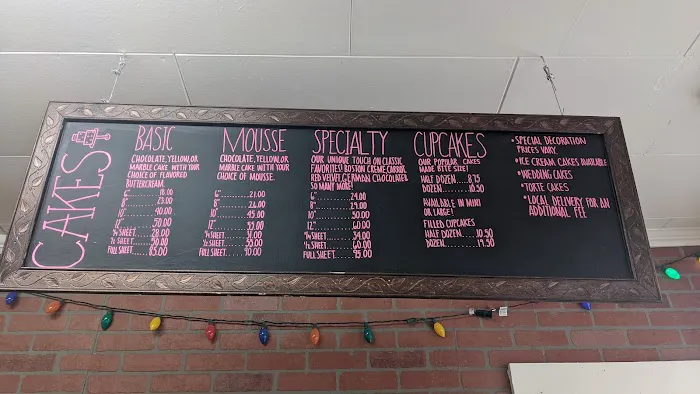 CAKES
BASIC
CHOCOLATE, YELLOW, OR
MARBLE CAKE WITH YOUR
CHOICE OF FLAVORED
BUTTERCREAM.
6" 18.00
8" 23.00
10" 40.00
12" 50.00
1/4 SHEET 28.00
1/2 SHEET 50.00
FULL SHEET 85.00
MOUSSE
CHOCOLATE, YELLOW, OR
MARBLE CAKE WITH YOUR
CHOICE OF MOUSSE.
6" 21.00
8" 26.00
10" 45.00
12" 55.00
1/4 SHEET 31.00
1/2 SHEET 55.00
FULL SHEET 90.00
SPECIALTY
OUR UNIQUE TOUCH ON CLASSIC
FAVORITES! BOSTON CREME, CARROT
RED VELVET, GERMAN CHOCOLATE &
SO MANY MORE!
6" 24.00
8" 29.00
10" 50.00
12" 60.00
1/4 SHEET 34.00
1/2 SHEET 60.00
FULL SHEET 95.00
CUPCAKES
OUR POPULAR CAKES
MADE BITE SIZE!
HALF DOZEN 8.75
DOZEN 16.50
AVAILABLE IN MINI
OR LARGE!
FILLED CUPCAKES
HALF DOZEN 10.50
DOZEN 19.50
• SPECIAL DECORATION
PRICES VARY
• ICE CREAM CAKES AVAILABLE
• WEDDING CAKES
• TORTE CAKES
• LOCAL DELIVERY FOR AN
ADDITIONAL FEE